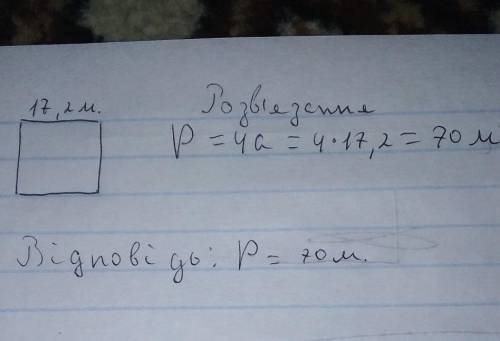 17,2 м.
Розвіезання
P = 4a = 4·17,2 = 70 м
Відповідь: P = 70 м.